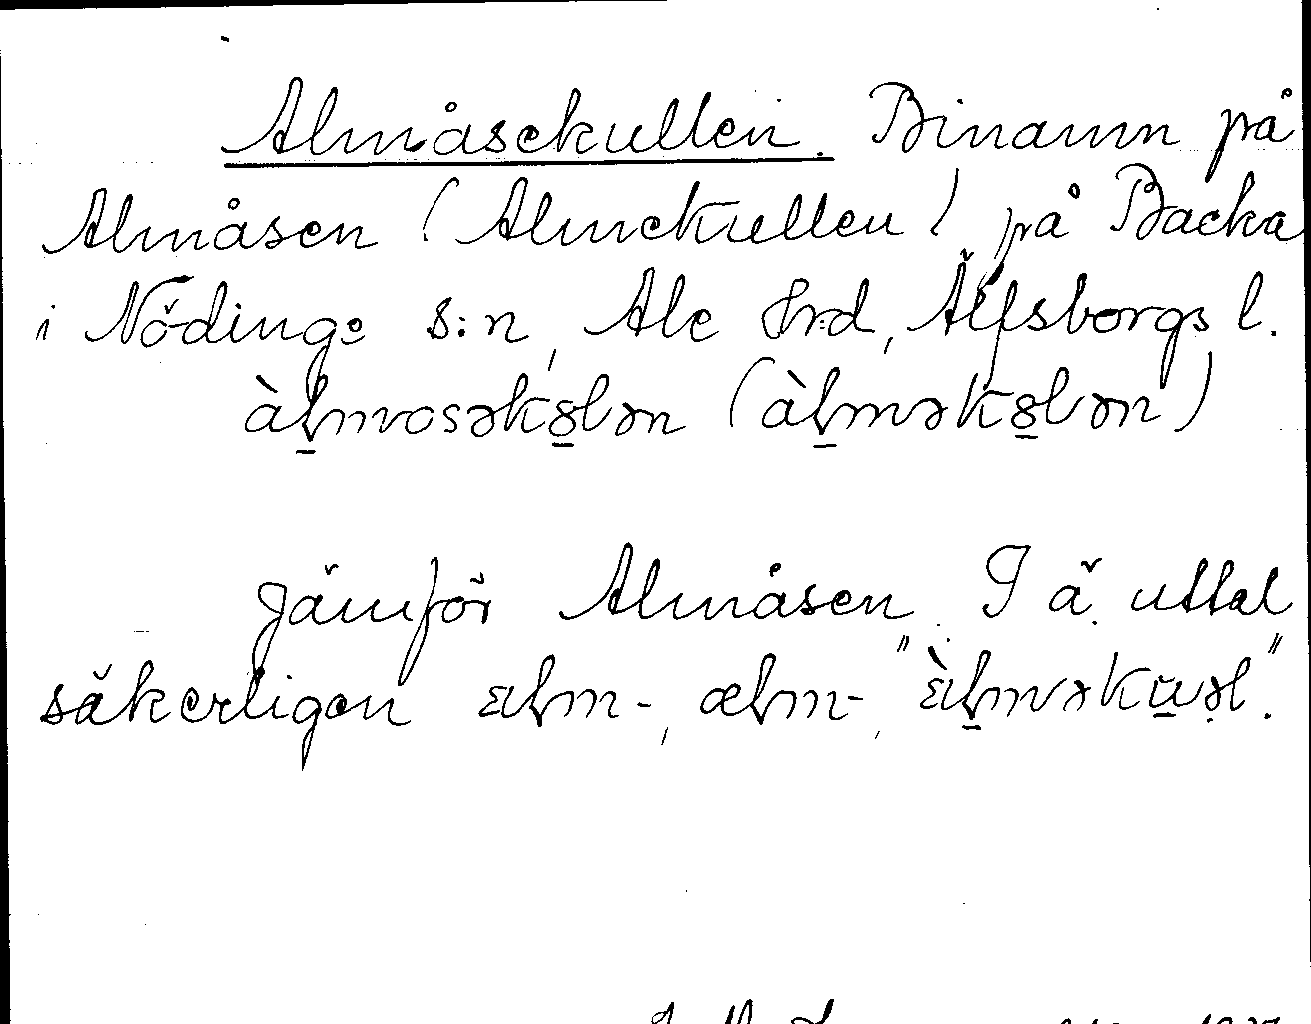 Almåsekullen. Binamn på
Almåsen (Almekullen) på Backa
i Nödinge s:n, Ale hrd, Älfsborgs l.
àƚmosəkȣlən (àƚməkȣlən)
Jämför Almåsen. I ä. uttal
säkerligen aƚm-, æƚm-, "